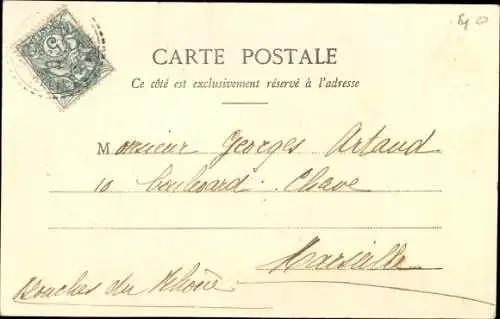 CARTE POSTALE
Ce côté est exclusivement réservé à l'adresse
Monsieur Georges Artaud
10 boulevard Chave
Marseille
Bouches du Rhône